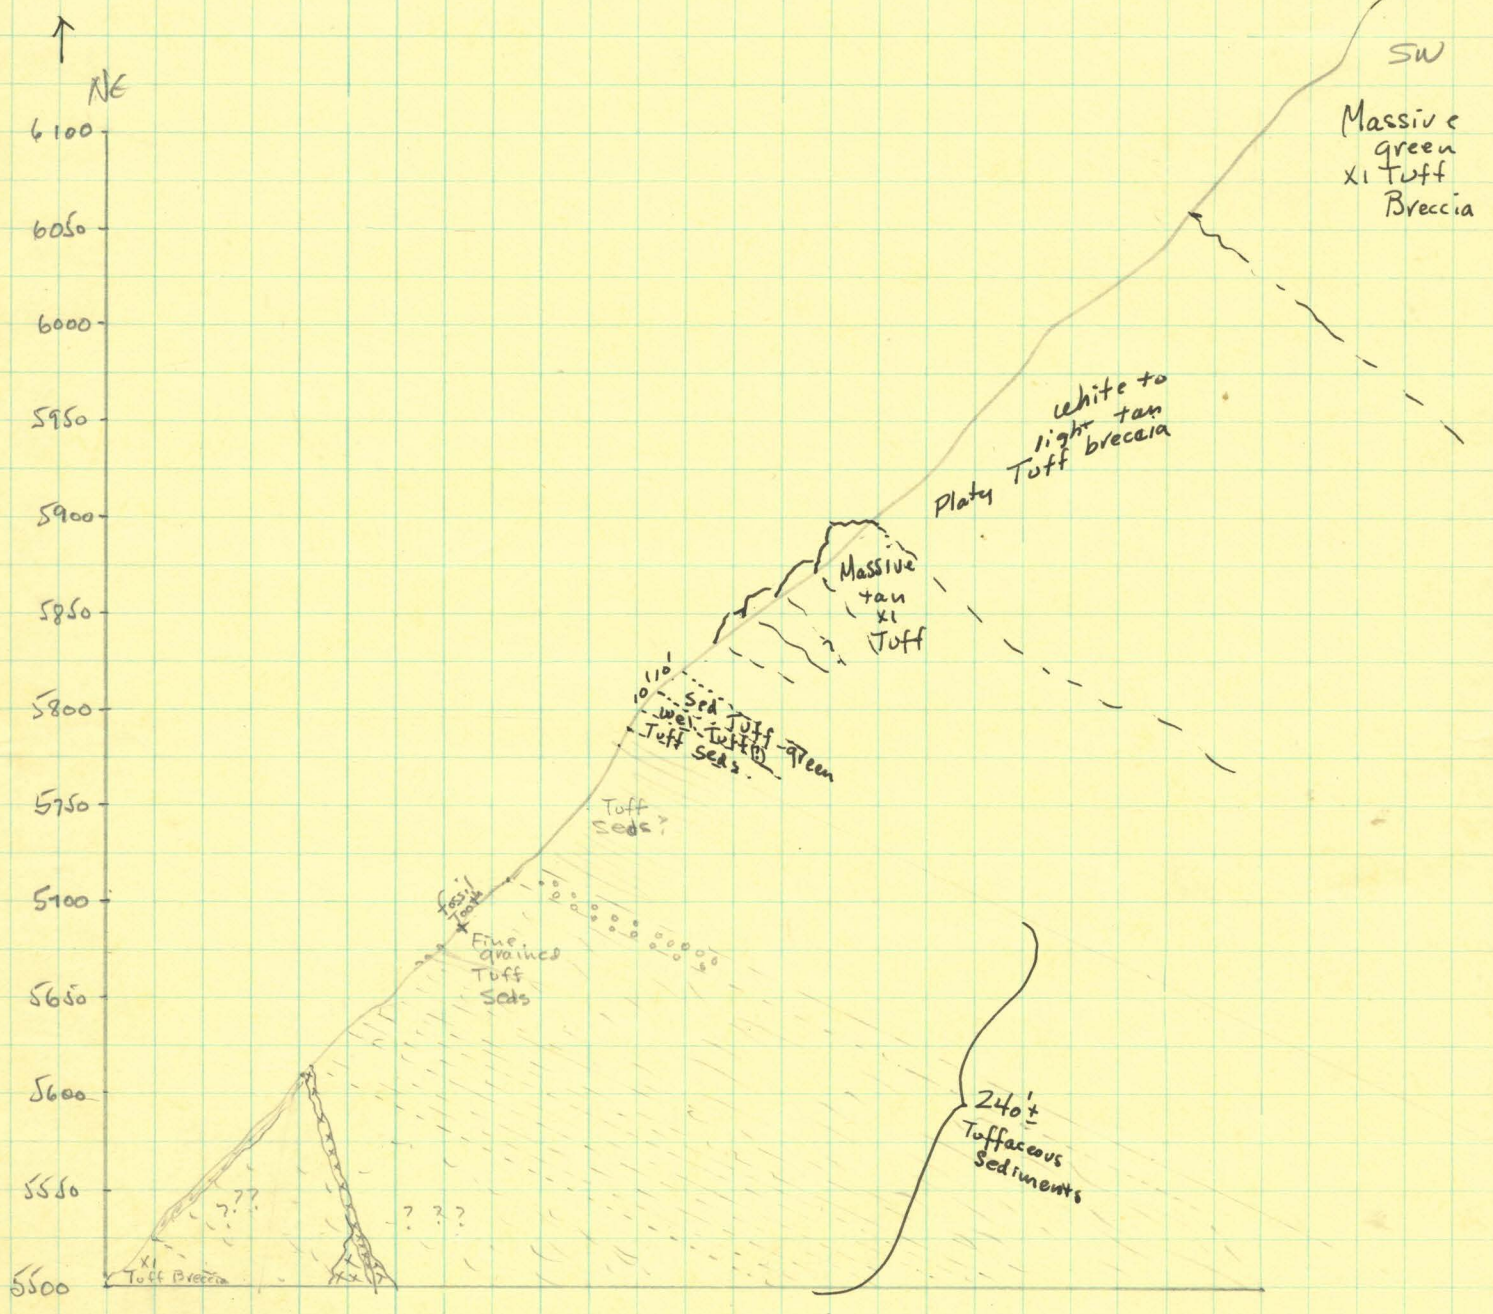 NE
SW
6100
6050
6000
5950
5900
5850
5800
5750
5700
5650
5600
5550
5500
Massive
green
x1 Tuff
Breccia
white to
light tan
Platy Tuff breccia
Massive
tan
x1
Tuff
?
110'
10
Sed Tuff
Tuff (?) - green
Tuff Seds.
Tuff
Seds?
fossil
Tooth
x
Fine
grained
Tuff
Seds
240'±
Tuffaceous
Sediments
???
? ? ?
x1
Tuff Breccia